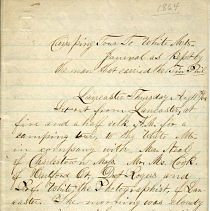 1864
Camping Tour To White Mts.
Journal as Kept by
the man that carried the Tin Pail
Lancaster Thursday Aug 18th
Start from Lancaster at
five and a half o'clk A.M. for a
camping tour, to the White Mts
in company with Mr.
of Charlestown Mass Mr. Wm. Cook
of Rutland Vt, Rogers and
White the Photographist of Lan-
caster. The morning was cloudy